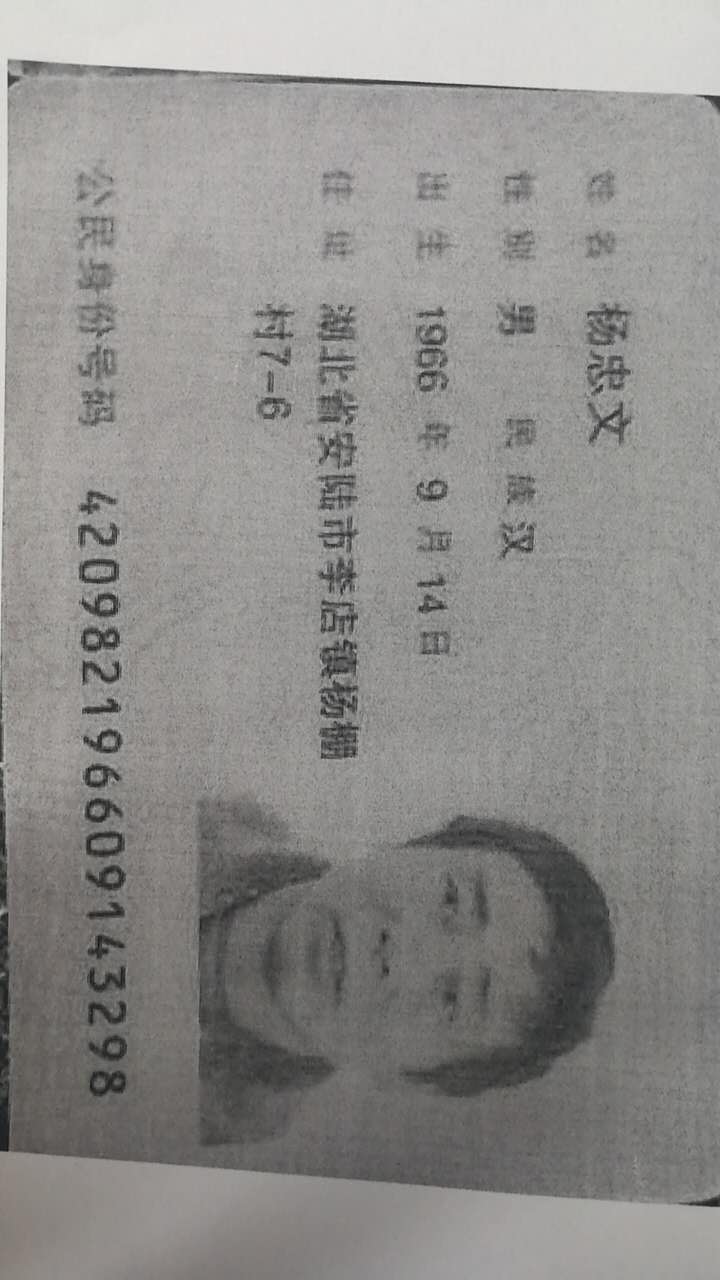 姓名 杨忠文
性别 男 民族 汉
出生 1966 年 9 月 14 日
住址 湖北省安陆市李店镇杨棚
村7-6
公民身份号码 420982196609143298